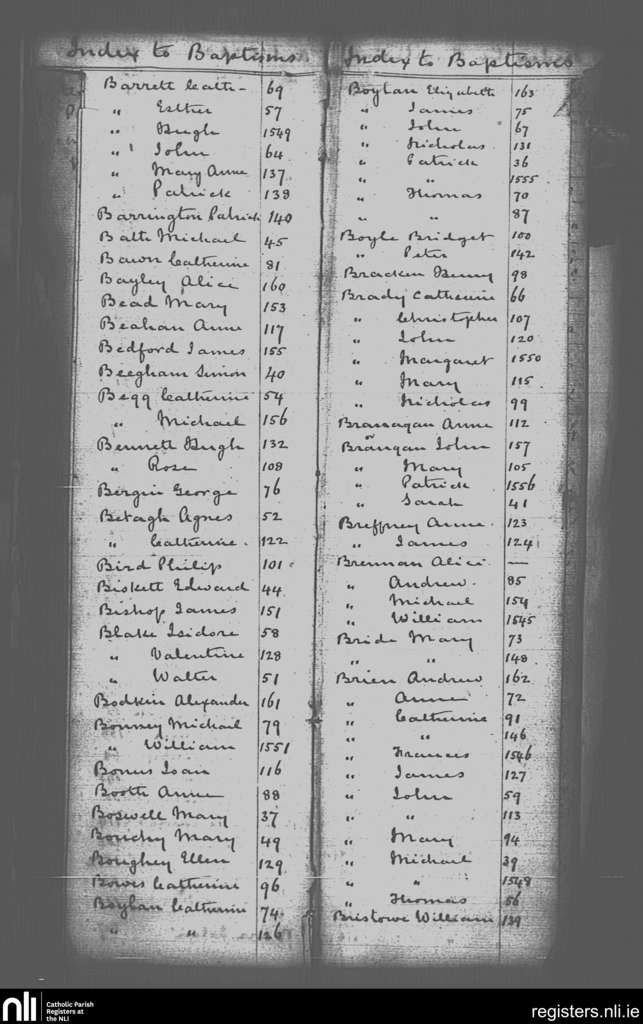 Index to Baptisms
Barrett Cath- 69
" Esther 57
" Hugh 1549
" John 64
" Mary Anne 137
" Patrick 138
Barrington Patrick 140
Bath Michael 45
Bawn Catherine 81
Bayley Alice 160
Bead Mary 153
Beahan Anne 117
Bedford James 155
Beegham Simon 40
Begg Catherine 54
" Michael 156
Bennett Hugh 132
" Rose 108
Bergin George 76
Betagh Agnes 52
" Catherine. 122
Bird Philip 101
Biskett Edward 44
Bishop James 151
Blake Isidore 58
" Valentine 128
" Walter 51
Bodkin Alexander 161
Bonney Michael 79
" William 1551
Bonus Joan 116
Booth Anne 88
Boswell Mary 37
Mary 49
Boughey Ellen 129
Bowes Catherine 96
Boylan Catherine 74
" " 126
Index to Baptisms
Boylan Elizabeth 163
" James 75
" John 67
" Nicholas 131
" Patrick 36
" " 1555
" Thomas 70
" " 87
Boyle Bridget 100
" Peter 142
Bracken Henry 98
Brady Catherine 66
" Christopher 107
" John 120
" Margaret 1550
" Mary 115
" Nicholas 99
Branagan Anne 112
Brangan John 157
" Mary 105
" Patrick 1556
" Sarah 41
Breffney Anne. 123
" James 124
Brennan Alice —
" Andrew. 85
" Michael 154
" William 1545
Bride Mary 73
" " 148
Brien Andrew 162
" Anne 72
" Catherine 91
" " 146
" Frances 1546
" James 127
" John 59
" " 113
" Mary 94
" Michael 39
" " 1548
" Thomas 56
Bristowe William 139
nli
Catholic Parish
Registers at
the NLI
registers.nli.ie